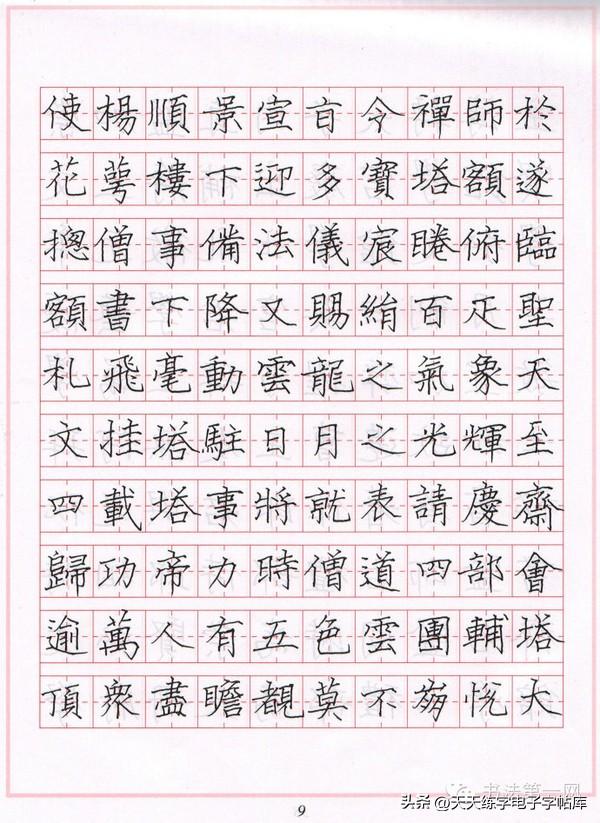 使楊順景宣旨令禪師於
花萼樓下迎多寶塔額遂
摠僧事備法儀宸睠俯臨
額書下降又賜絹百疋聖
札飛毫動雲龍之氣象天
文挂塔駐日月之光輝至
四載塔事將就表請慶齋
歸功帝力時僧道四部會
逾萬人有五色雲團輔塔
頂衆盡瞻覩莫不崩悅大
书法第一网
9
头条 @天天练字电子字帖库